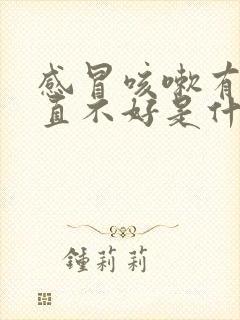 感冒咳嗽有
直不好是什
鍾莉莉